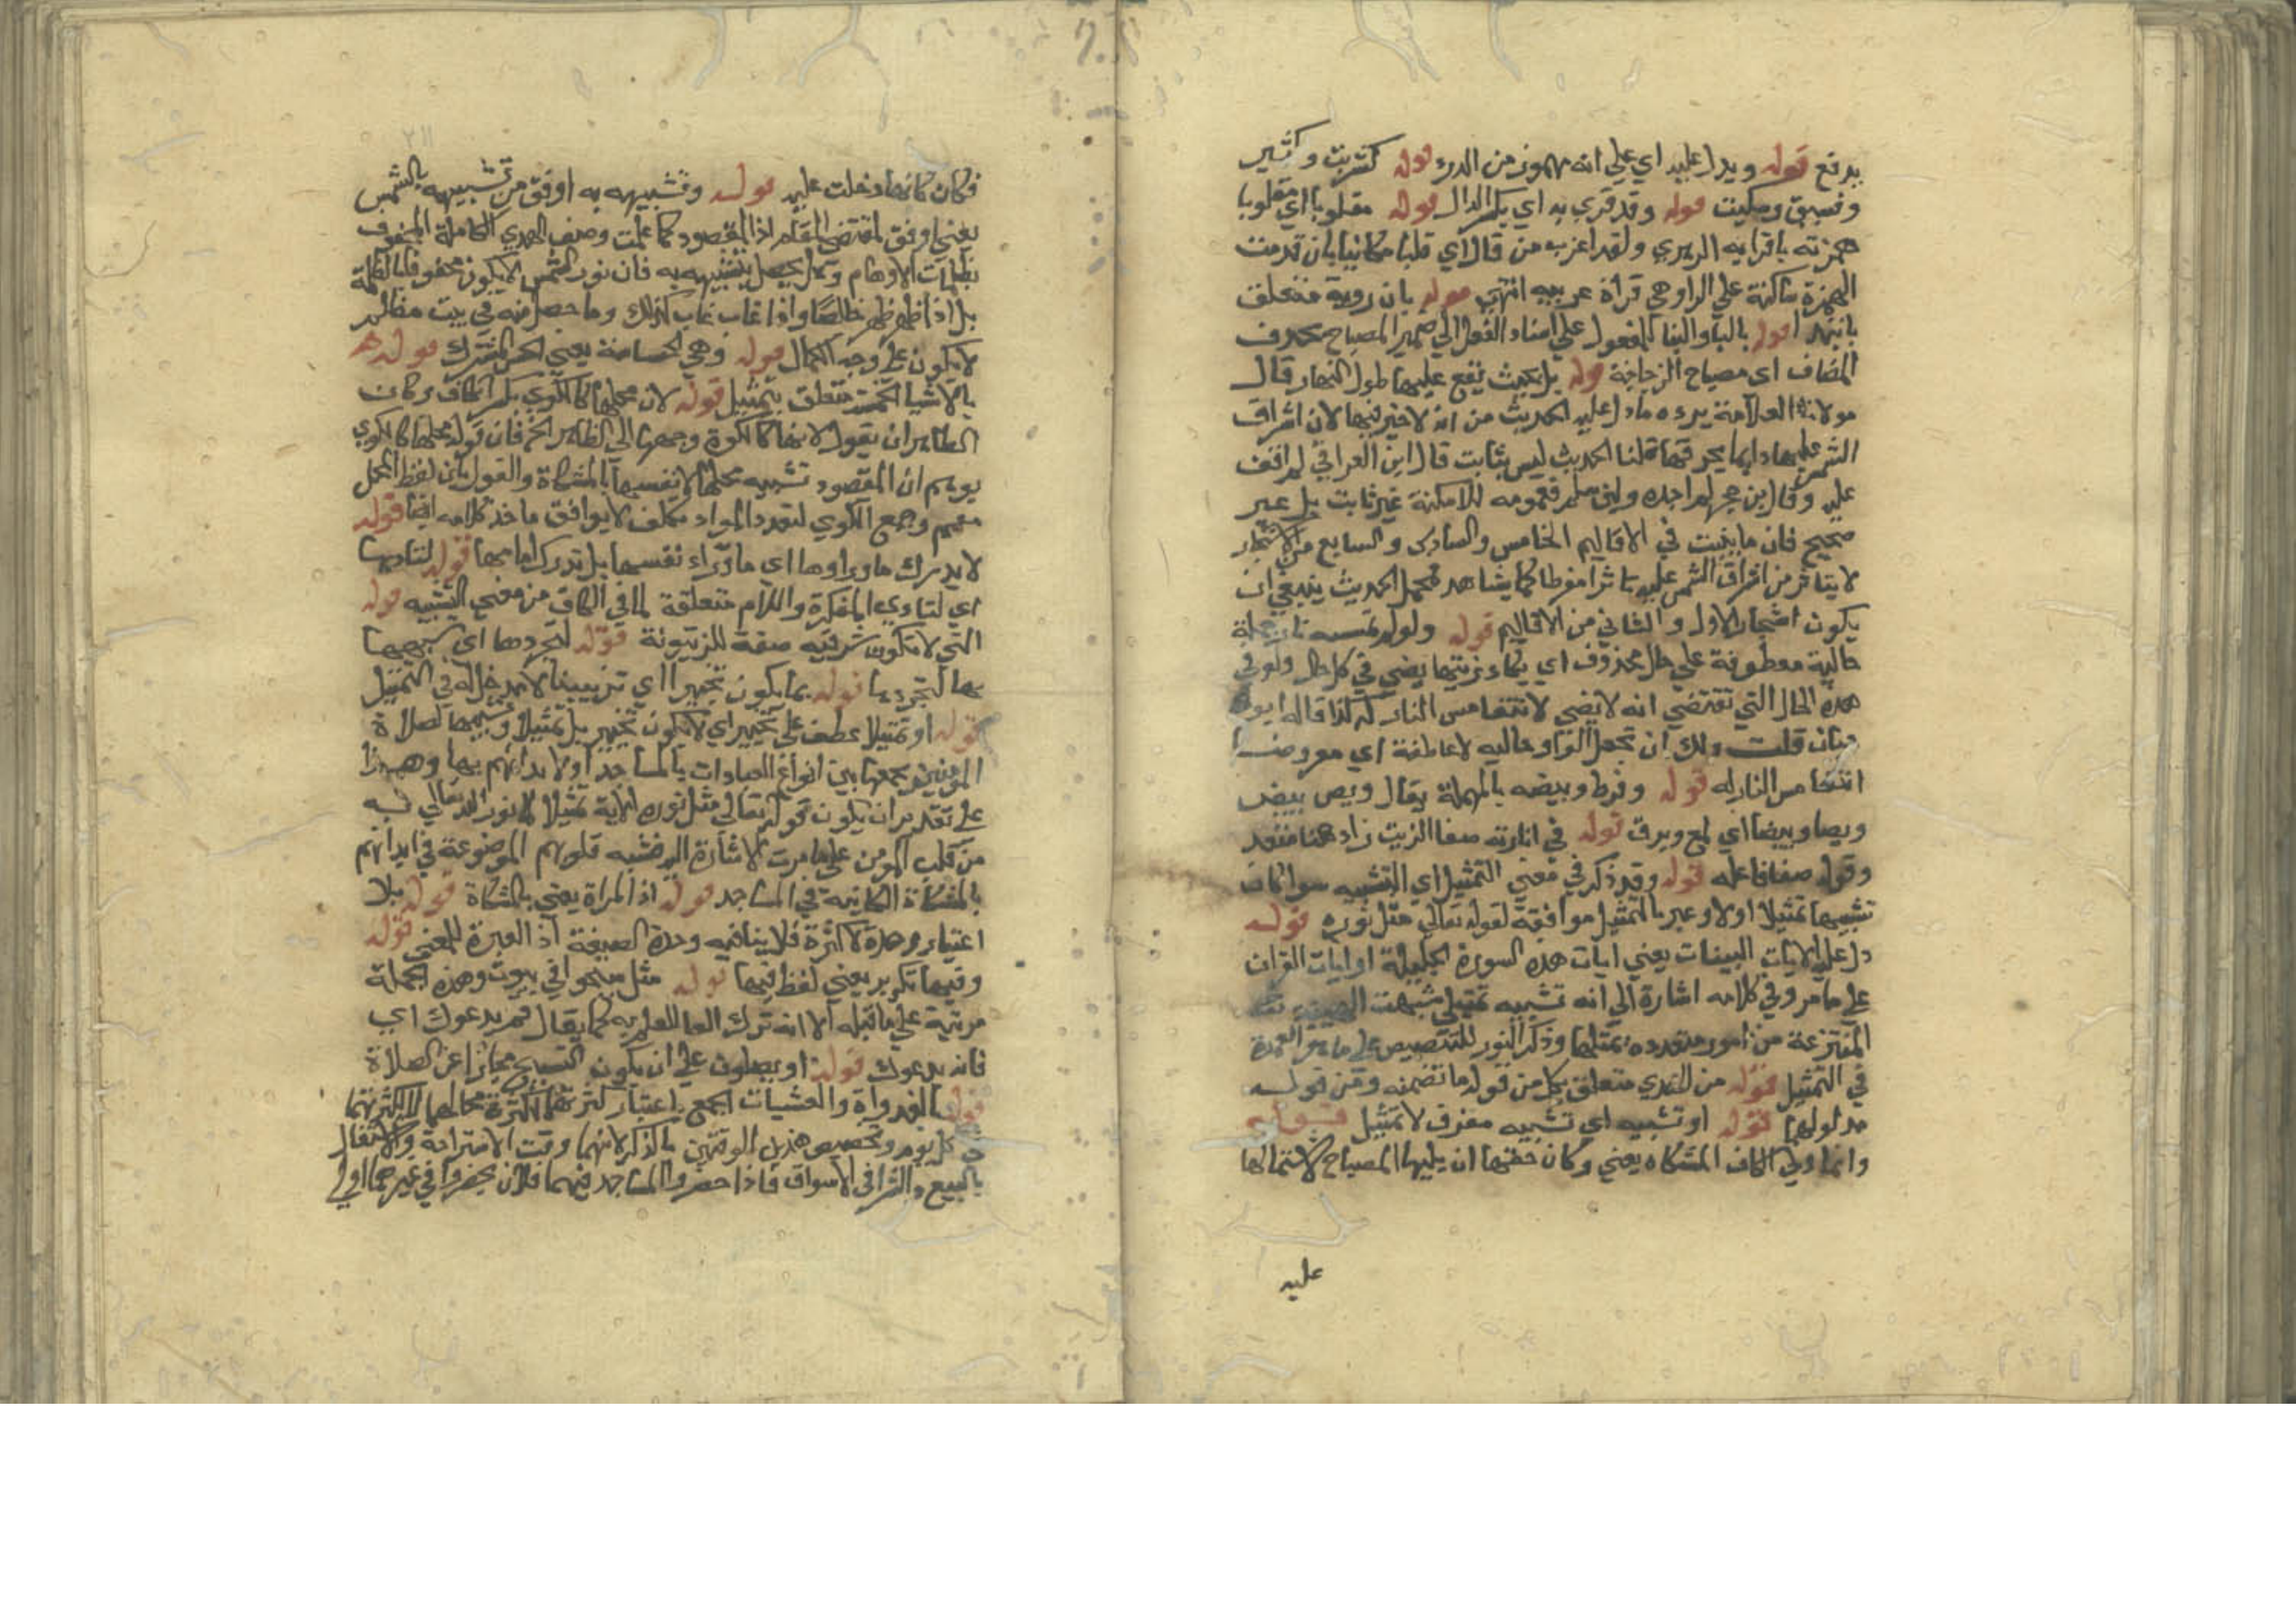 يدفع قوله ويدل عليه اي علي انه مهموز من الدرء قوله كشريت وكثير
وفسيق وسكيت قوله وقد قري به اي بكسر الدال قوله مقلوبا اي مقلوبا
همزته ياء قرا به الزهري ولقد اغرب من قال اي قلبا مكانيا بان قدمت
الهمزة ساكنة علي الراء وهي قراة غريبه انتهي قوله بان روية
قوله بالياء والبنا للمفعول علي اسناد الفعل الي ضمير المصباح بحذف
المضاف اي مصباح الزجاجة قوله بل بحيث تقع عليها طول النهار قال
مولانا العلامة يرده ما دل عليه الحديث من انه لا خير فيها لان اشراق
الشمس عليها دايما يحرقها قلنا الحديث ليس بثابت قال ابن العراقي لم اقف
عليه وقال ابن حجر لم اجده ولئن سلم فعمومه للامكنة غير ثابت بل غير
صحيح فان ما ينبت في الاقاليم الخامس والسادس والسابع من الاشجار
لا يتاثر من اشراق الشمس عليه تاثرا مفرطا كما يشاهد فمحمل الحديث ينبغي ان
يكون اشجار الاول والثاني من الاقاليم قوله ولو لم تمسسه نار جملة
حالية معطوفة علي حال محذوف اي يكاد زيتها يضي في كل حال ولو في
هذه الحال التي تقتضي انه لا يضي لانتفا مس النار له كذا قاله ابو
حيان قلت ولك ان تجعل الواو حاليه لا عاطفة اي مفروضا
انتفا مس النار له قوله وفرط وبيصه بالمهملة يقال وبص يبص
وبصا وبيصا اي لمع وبرق قوله في انارته صفا الزيت زاد هنا
وقوله صفا فاعله قوله وقد ذكر في معني التمثيل اي التشبيه سوا كان
تشبيها تمثيلا او لا وعبر بالتمثيل موافقة لقوله تعالي مثل نوره قوله
دل عليه الايات البينات يعني ايات هذه السورة الجليلة او ايات القران
علي ما مر وفي كلامه اشارة الي انه تشبيه تمثيلي شبهت الهيئة
المنتزعة من امور متعددة بمثلها وذكر النور للتنصيص علي ما هو العمدة
في التمثيل قوله من الهدي متعلق بكل من قوله ما تضمنه ومن قوله
مدلولها قوله او تشبيه اي تشبيه مفرق لا تمثيل قوله
وانما ولي الكاف المشكاه يعني وكان حقها ان يليها المصباح لاشتمالها
عليه
فكان كانها دخلت عليه قوله وتشبيهه به اوفق من تشبيهه بالشمس
يعني اوفق لمقتضي المقام اذ المقصود كما علمت وصف الهدي الكاملة المحفوف
بظلمات الاوهام وقل يحصل بتشبيهه به فان نور الشمس لا يكون محفوفا بالظلمة
بل اذا ظهر ظهر خالصا واذا غاب غاب كذلك وما حصل منه في بيت مظلم
لا يكون علي وجه الكمال قوله وهي الحساسة يعني الحس المشترك قوله
بالاشيا الخمسة متعلق بتمثيل قوله لان محلها كالكوي بكسر الكاف وكان
الظاهر ان يقول لانها كالكوة وجهها الي الظاهر الخ فان قوله محلها كالكوي
يوهم ان المقصود تشبيه محلها لا نفسها بالمشكاة والقول بان لفظ المحل
مقحم وجمع الكوي لتعدد المواد تكلف لا يوافق ماخذ كلامه ايضا قوله
لا يدرك ما وراوها اي ما وراء نفسها بل تدرك امامها قوله لتاديها
اي لتادي المفكرة واللام متعلقة لما في الكاف من معني التشبيه قوله
التي لا تكون شرقيه صفة للزيتونة قوله لتجردها اي
بها لتجردها قوله بما يكون تخييرا اي تزيينا لا مدخل له في التمثيل
قوله او تمثيلا عطف علي تخيير اي لا يكون تخيير بل تمثيلا لصلاة
المومنين بجمعها بين انواع العبادات بالمساجد او لابدانهم بها وهذا
علي تقدير ان يكون قوله تعالي مثل نوره الاية تمثيلا لما نور الله تعالي به
من قلب المومن علي ما مرت الاشارة اليه فشبه قلوبهم الموضوعة في ابدانهم
بالمشكاة الكاينة في المساجد قوله اذ المراد يعني بالمشكاة قوله بلا
اعتبار وحدة ولا كثرة فلا ينافيه وحدة الصيغة اذ العبرة للمعني قوله
وفيها تكرير يعني لفظ فيها قوله مثل سبحوا في بيوت وهذه الجملة
مرتبة علي ما قبله الا انه ترك الفا للعلم به كما يقال قم يدعوك اي
فانه يدعوك قوله او يصلون علي ان يكون التسبيح مجازا عن الصلاة
قوله بالغدواة والعشيات الجمع باعتبار كثرتهما
في كل يوم وتخصيص هذين الوقتين بالذكر لانهما وقت الاستراحة والاشتغال
بالبيع والشرا في الاسواق فاذا حضروا المساجد فيهما فلان يحضروا في غيرهما اولي